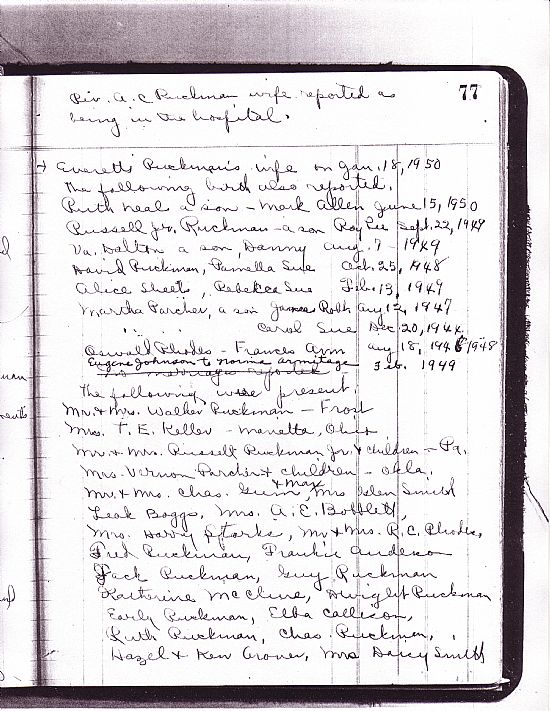 77
Rev. A. C Ruckman wife reported as
being in the hospital.
Everette Ruckman's wife on Jan. 18, 1950
The following birth also reported.
Ruth Neal a son - Mark Allen June 15, 1950
Russell Jr. Ruckman - a son Roy Lee Sept. 22, 1949
Va. Dalton a son, Danny Aug. 7 - 1949
David Ruckman, Pamella Sue Oct. 25, 1948
Alice Sheets, Rebecca Sue Feb. 13, 1949
Martha Parcher, a son James Robt Aug 12, 1947
" " Carol Sue Dec 20, 1944
Oswald Rhodes - Frances Ann Aug 18, 1948
Eugene Johnson to Norma Armitage Feb. 1949
No marriages reported
The following were present.
Mr. & Mrs. Walker Ruckman - Frost
Mrs. T. E. Keller - Marietta, Ohio
Mr. & Mrs. Russell Ruckman Jr. & children - Pa.
Mrs. Vernon Parcher & children - Okla.
Mr. & Mrs. Chas. Gum & Max, Mrs Smith
Leak Boggs, Mrs. A. E. Bobblett,
Mrs. Harry Sparks, Mr & Mrs. R. C. Rhodes,
Fred Ruckman, Frankie Anderson
Jack Ruckman, Guy Ruckman
Katherine McClure, Dwight Ruckman
Early Ruckman, Elba Callison,
Ruth Ruckman, Chas. Ruckman,
Hazel & Ken Mrs Darcy Smith